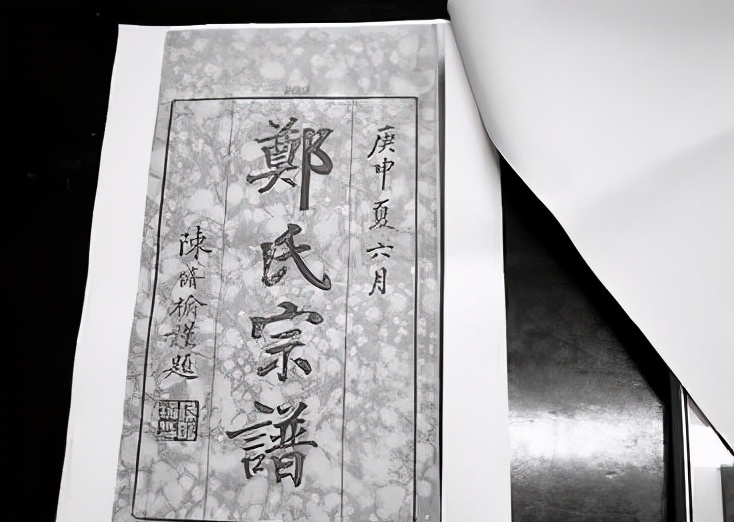 庚申夏六月
鄭氏宗譜
陳 謹題